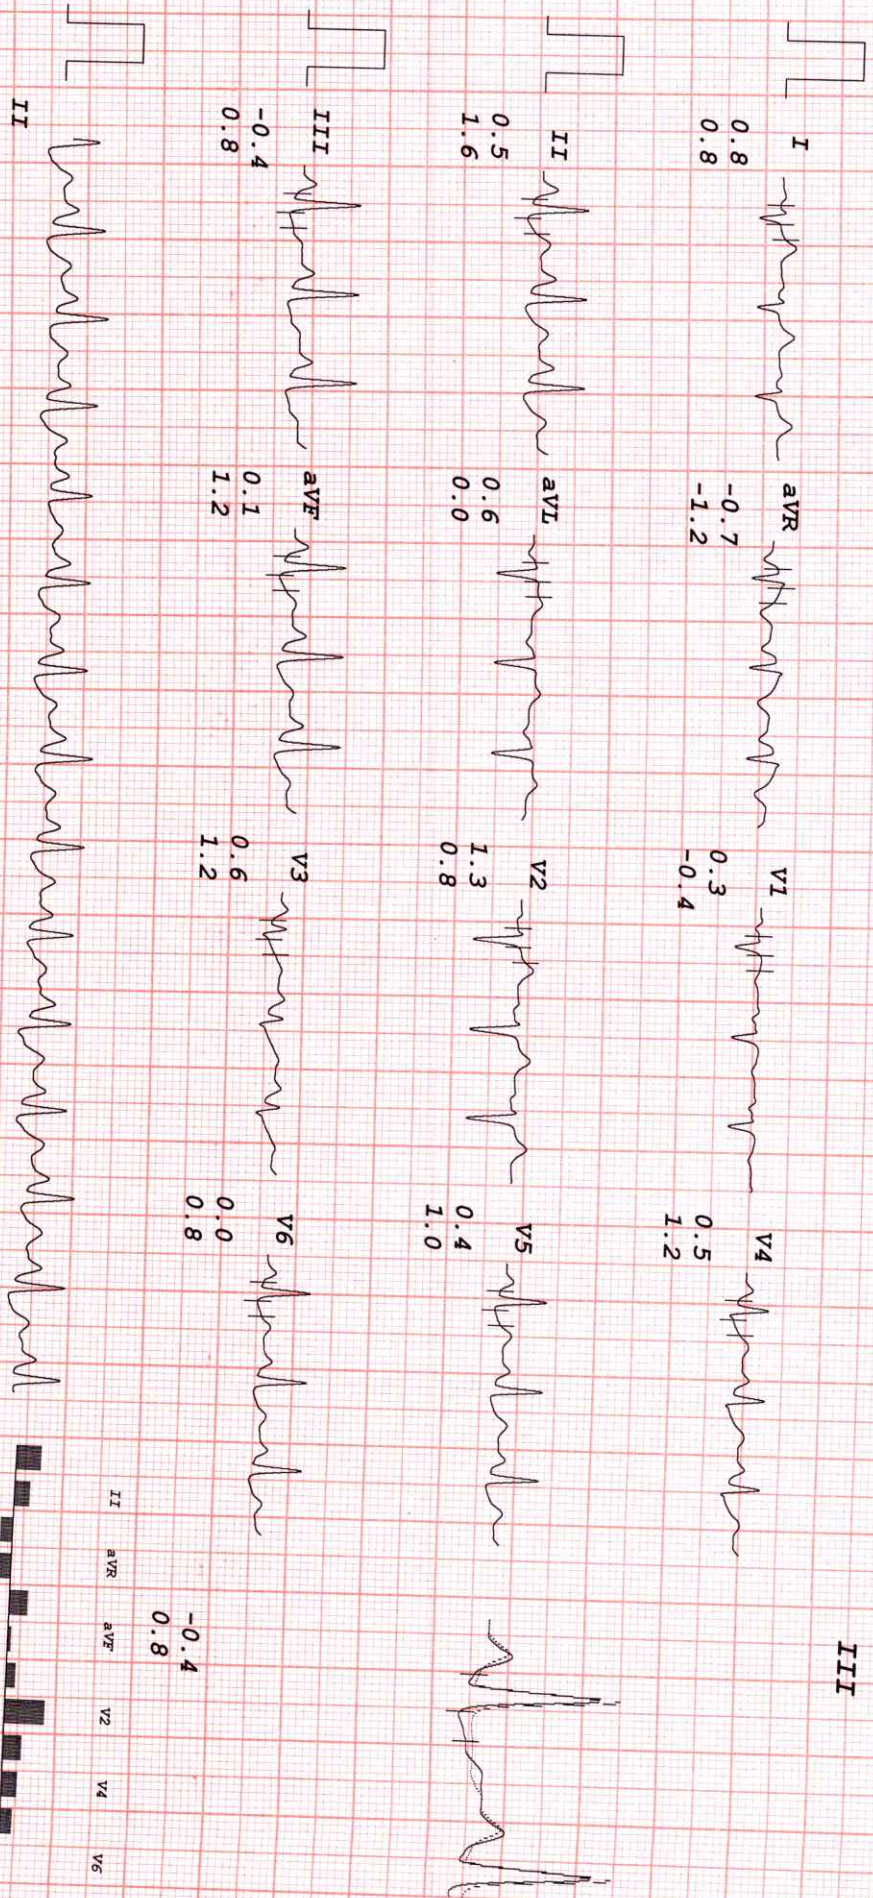 III
I
0.8
0.8
aVR
-0.7
-1.2
V1
0.3
-0.4
V4
0.5
1.2
II
0.5
1.6
aVL
0.6
0.0
V2
1.3
0.8
V5
0.4
1.0
III
-0.4
0.8
aVF
0.1
1.2
V3
0.6
1.2
V6
0.0
0.8
-0.4
0.8
II
II
aVR
aVF
V2
V4
V6